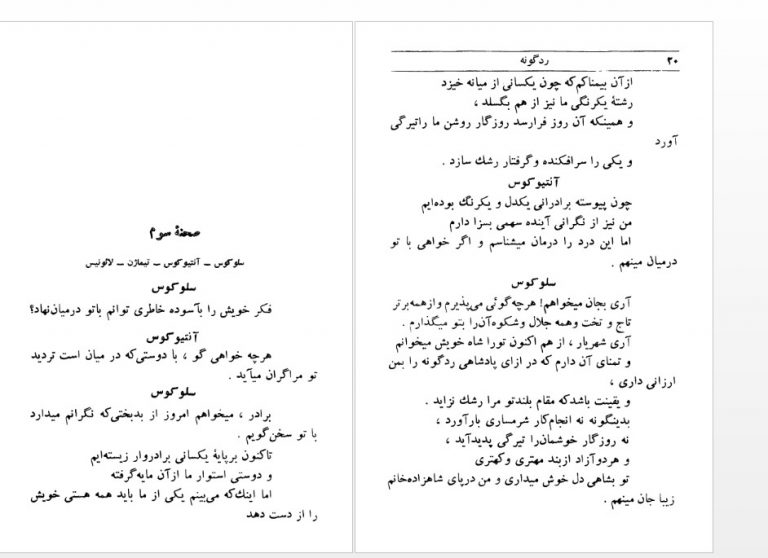 صحنهٔ سوم
سلوکوس ــ آنتیوکوس ــ تیماژن ــ لائونیس
سلوکوس
فکر خویش را بآسوده خاطری توانم باتو درمیان‌نهاد؟
آنتیوکوس
هرچه خواهی گو ، با دوستی‌که در میان است تردید
تو مراگران میآید .
سلوکوس
برادر ، میخواهم امروز از بدبختی‌که نگرانم میدارد
با تو سخن‌گویم .
تاکنون برپایهٔ یکسانی برادروار زیسته‌ایم
و دوستی استوار ما ازآن مایه‌گرفته
اما اینك‌که می‌بینم یکی از ما باید همه هستی خویش
را از دست دهد
۳۰
ردگونه
ازآن بیمناکم‌که چون یکسانی از میانه خیزد
رشتهٔ یکرنگی ما نیز از هم بگسلد ،
و همینکه آن روز فرارسد روزگار روشن ما راتیرگی
آورد
و یکی را سرافکنده وگرفتار رشك سازد .
آنتیوکوس
چون پیوسته برادرانی یکدل و یکرنگ بوده‌ایم
من نیز از نگرانی آینده سهمی بسزا دارم
اما این درد را درمان میشناسم و اگر خواهی با تو
درمیان مینهم .
سلوکوس
آری بجان میخواهم! هرچه‌گوئی می‌پذیرم وازهمه‌برتر
تاج و تخت وهمه جلال وشکوه‌آن‌را بتو میگذارم .
آری شهریار ، از هم اکنون تورا شاه خویش میخوانم
و تمنای آن دارم که در ازای پادشاهی ردگونه را بمن
ارزانی داری ،
و یقینت باشدکه مقام بلندتو مرا رشك نزاید .
بدینگونه نه انجام‌کار شرمساری بارآورد ،
نه روزگار خوشمان‌را تیرگی پدیدآید ،
و هردوآزاد ازبند مهتری وکهتری
تو بشاهی دل خوش میداری و من درپای شاهزاده‌خانم
زیبا جان مینهم .